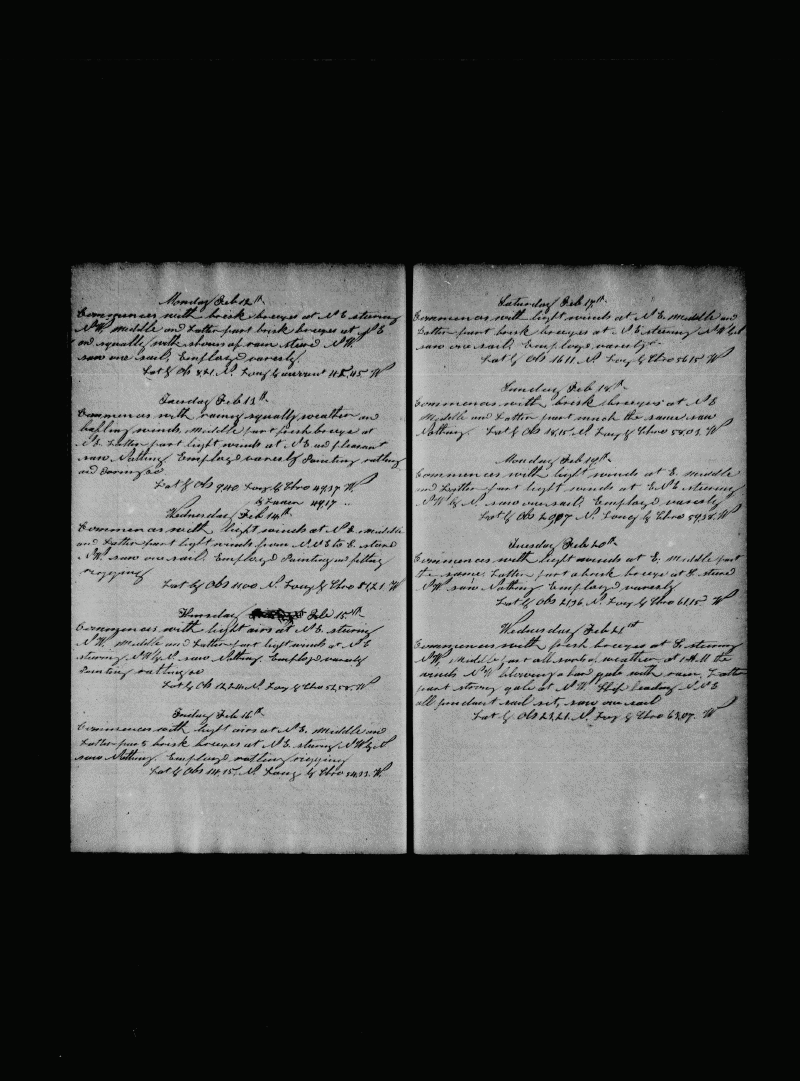 Monday Feb 12th
Commences with brisk breezes at N E stering
N W. Middle and Latter part brisk breezes at N E
and squally with showers of rain sterd N W.
saw one sail. Employed variesly
Lat by Obs 8.21 N. Long by 45 W
Tuesday Feb 13th
Commences with rainy squally weather and
baffling winds. Middle part fresh breeze at
N E. Latter part light winds at N E and pleasant
saw Nothing. Employed variesly Painting ratling
and
Lat by Obs 9.40 Long by Chro 49.37 W
by Lunar 49.17 ..
Wednesday Feb 14th
Commences with light winds at N E. Middle
and Latter part light winds from N N E to E. sterd
N W. saw one sail. Employed Painting and fitting
rigging
Lat by Obs 11.00 N. Long by Chro 51.21 W
Thursday Feb 15th
Commences with light airs at N E. stering
N W. Middle and Latter part light winds at N E
stering N W by N. saw Nothing. Employed variesly
Painting ratling &c
Lat by Obs 12.24 N. Long by Chro 52.58. W
Friday Feb 16th
Commences with light airs at N E. Middle and
Latter part brisk breezes at N E. stering N W by N
saw Nothing. Employed ratling rigging
Lat by Obs 14.15 N. Long by Chro 54.33. W
Saturday Feb 17th
Commences with light winds at N E. Middle and
Latter part brisk breezes at N E stering N W by N
saw one sail. Employed variesly
Lat by Obs 16.11 N. Long by Chro 56.15 W
Sunday Feb 18th
Commences with brisk breezes at N E
Middle and Latter part much the same. saw
Nothing. Lat by Obs 18.15 N. Long by Chro 58.03. W
Monday Feb 19th
Commences with light winds at E. Middle
and Latter part light winds at E N E stering
N W by N. saw one sail. Employed variesly
Lat by Obs 20.07 N. Long by Chro 59.58. W
Tuesday Feb 20th
Commences with light winds at E. Middle part
the same. Latter part a brisk breeze at S. sterd
N W. saw Nothing Employed variesly
Lat by Obs 21.36 N. Long by Chro 61.15 W
Wednesday Feb 21st
Commences with fresh breezes at S. stering
N W, Middle part all sorts of weather. at 1 A.M the
winds N W blowing a hard gale with rain, Latter
part strong gale at N W. Ship heading N N E
all prudent sail set, saw one sail
Lat by Obs 23.21 N. Long by Chro 63.07. W